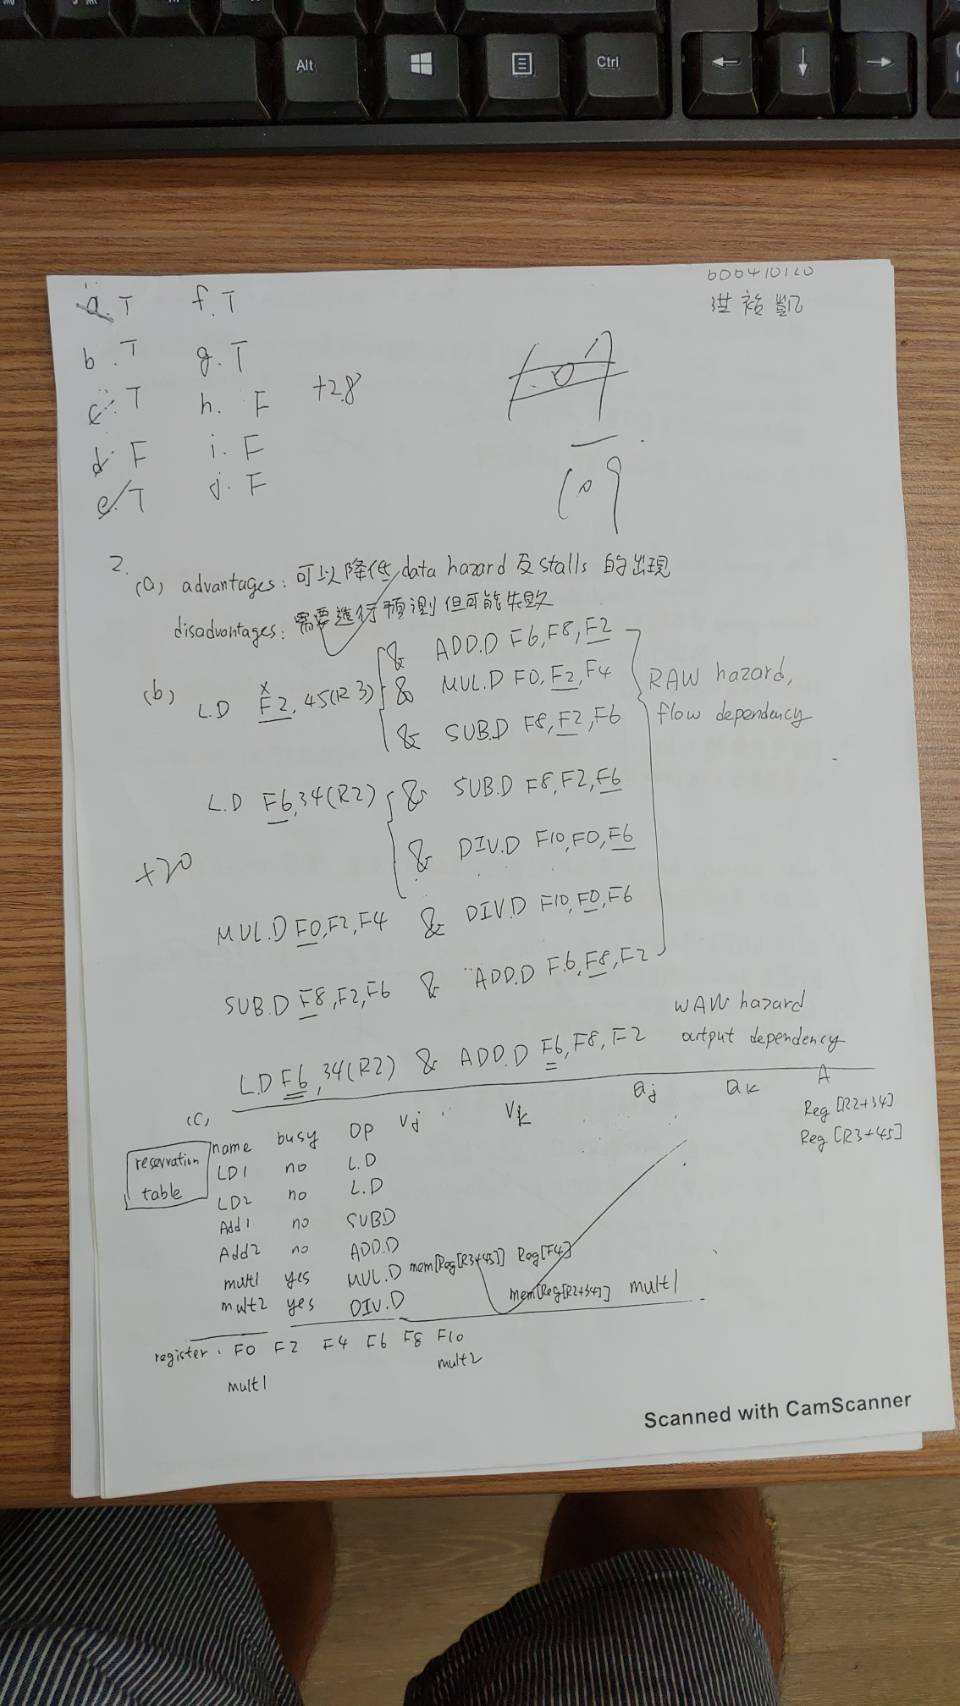 Alt
Ctrl
600410120
洪裕凱
a. T f. T
b. T g. T
c. T h. F
d. F i. F
e. T j. F
+28
109
2.
(a) advantages: 可以降低 data hazard 及 stalls 的出現
disadvantages: 需要進行預測但可能失敗
(b) L.D F2, 45(R3) & ADD.D F6, F8, F2
& MUL.D F0, F2, F4
& SUB.D F8, F2, F6
RAW hazard,
flow dependency
L.D F6, 34(R2) & SUB.D F8, F2, F6
& DIV.D F10, F0, F6
+20
MUL.D F0, F2, F4 & DIV.D F10, F0, F6
SUB.D F8, F2, F6 & ADD.D F6, F8, F2
L.D F6, 34(R2) & ADD.D F6, F8, F2
WAW hazard
output dependency
(c)
reservation
table
name busy OP Vj Vk Qj Qk A
LD1 no L.D Reg[R2+34]
LD2 no L.D Reg[R3+45]
Add1 no SUBD
Add2 no ADD.D
mult1 yes MUL.D mem[Reg[R3+45]] Reg[F4]
mult2 yes DIV.D mem[Reg[R2+34]] mult1
register: F0 F2 F4 F6 F8 F10
mult1 mult2
Scanned with CamScanner